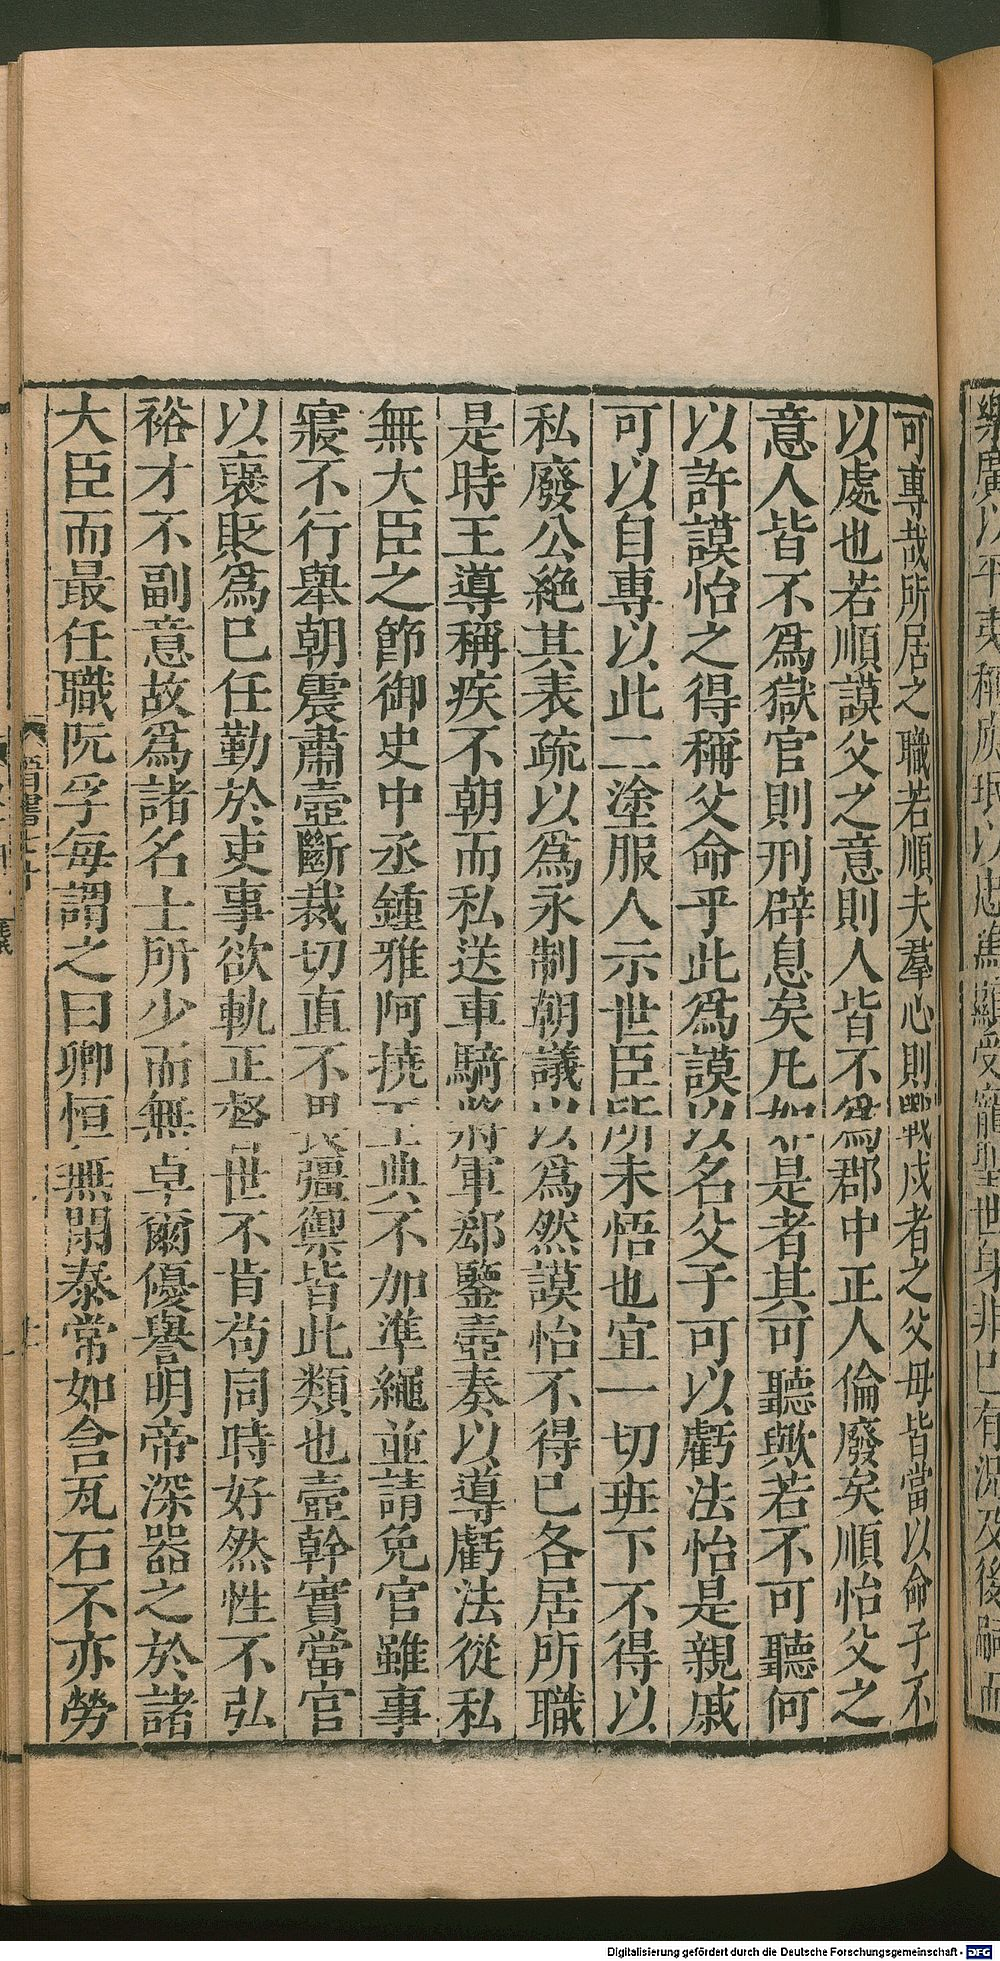 可專哉所居之職若順夫羣心則戰戍者之父母皆當以命子不
以處也若順謨父之意則人皆不爲郡中正人倫廢矣順怡父之
意人皆不爲獄官則刑辟息矣凡如是者其可聽歟若不可聽何
以許謨怡之得稱父命乎此爲謨以名父子可以虧法怡是親戚
可以自專以此二塗服人示世臣所未悟也宜一切班下不得以
私廢公絶其表疏以爲永制朝議以爲然謨怡不得已各居所職
是時王導稱疾不朝而私送車騎將軍郄鑒壼奏以導虧法從私
無大臣之節御史中丞鍾雅阿撓王典不加準繩並請免官雖事
寢不行舉朝震肅壼斷裁切直不畏彊禦皆此類也壼幹實當官
以褒貶爲已任勤於吏事欲軌正督世不肯苟同時好然性不弘
裕才不副意故爲諸名士所少而無卓爾優譽明帝深器之於諸
大臣而最任職阮孚每謂之曰卿恒無閑泰常如含瓦石不亦勞
晉書七十
Digitalisierung gefördert durch die Deutsche Forschungsgemeinschaft - DFG